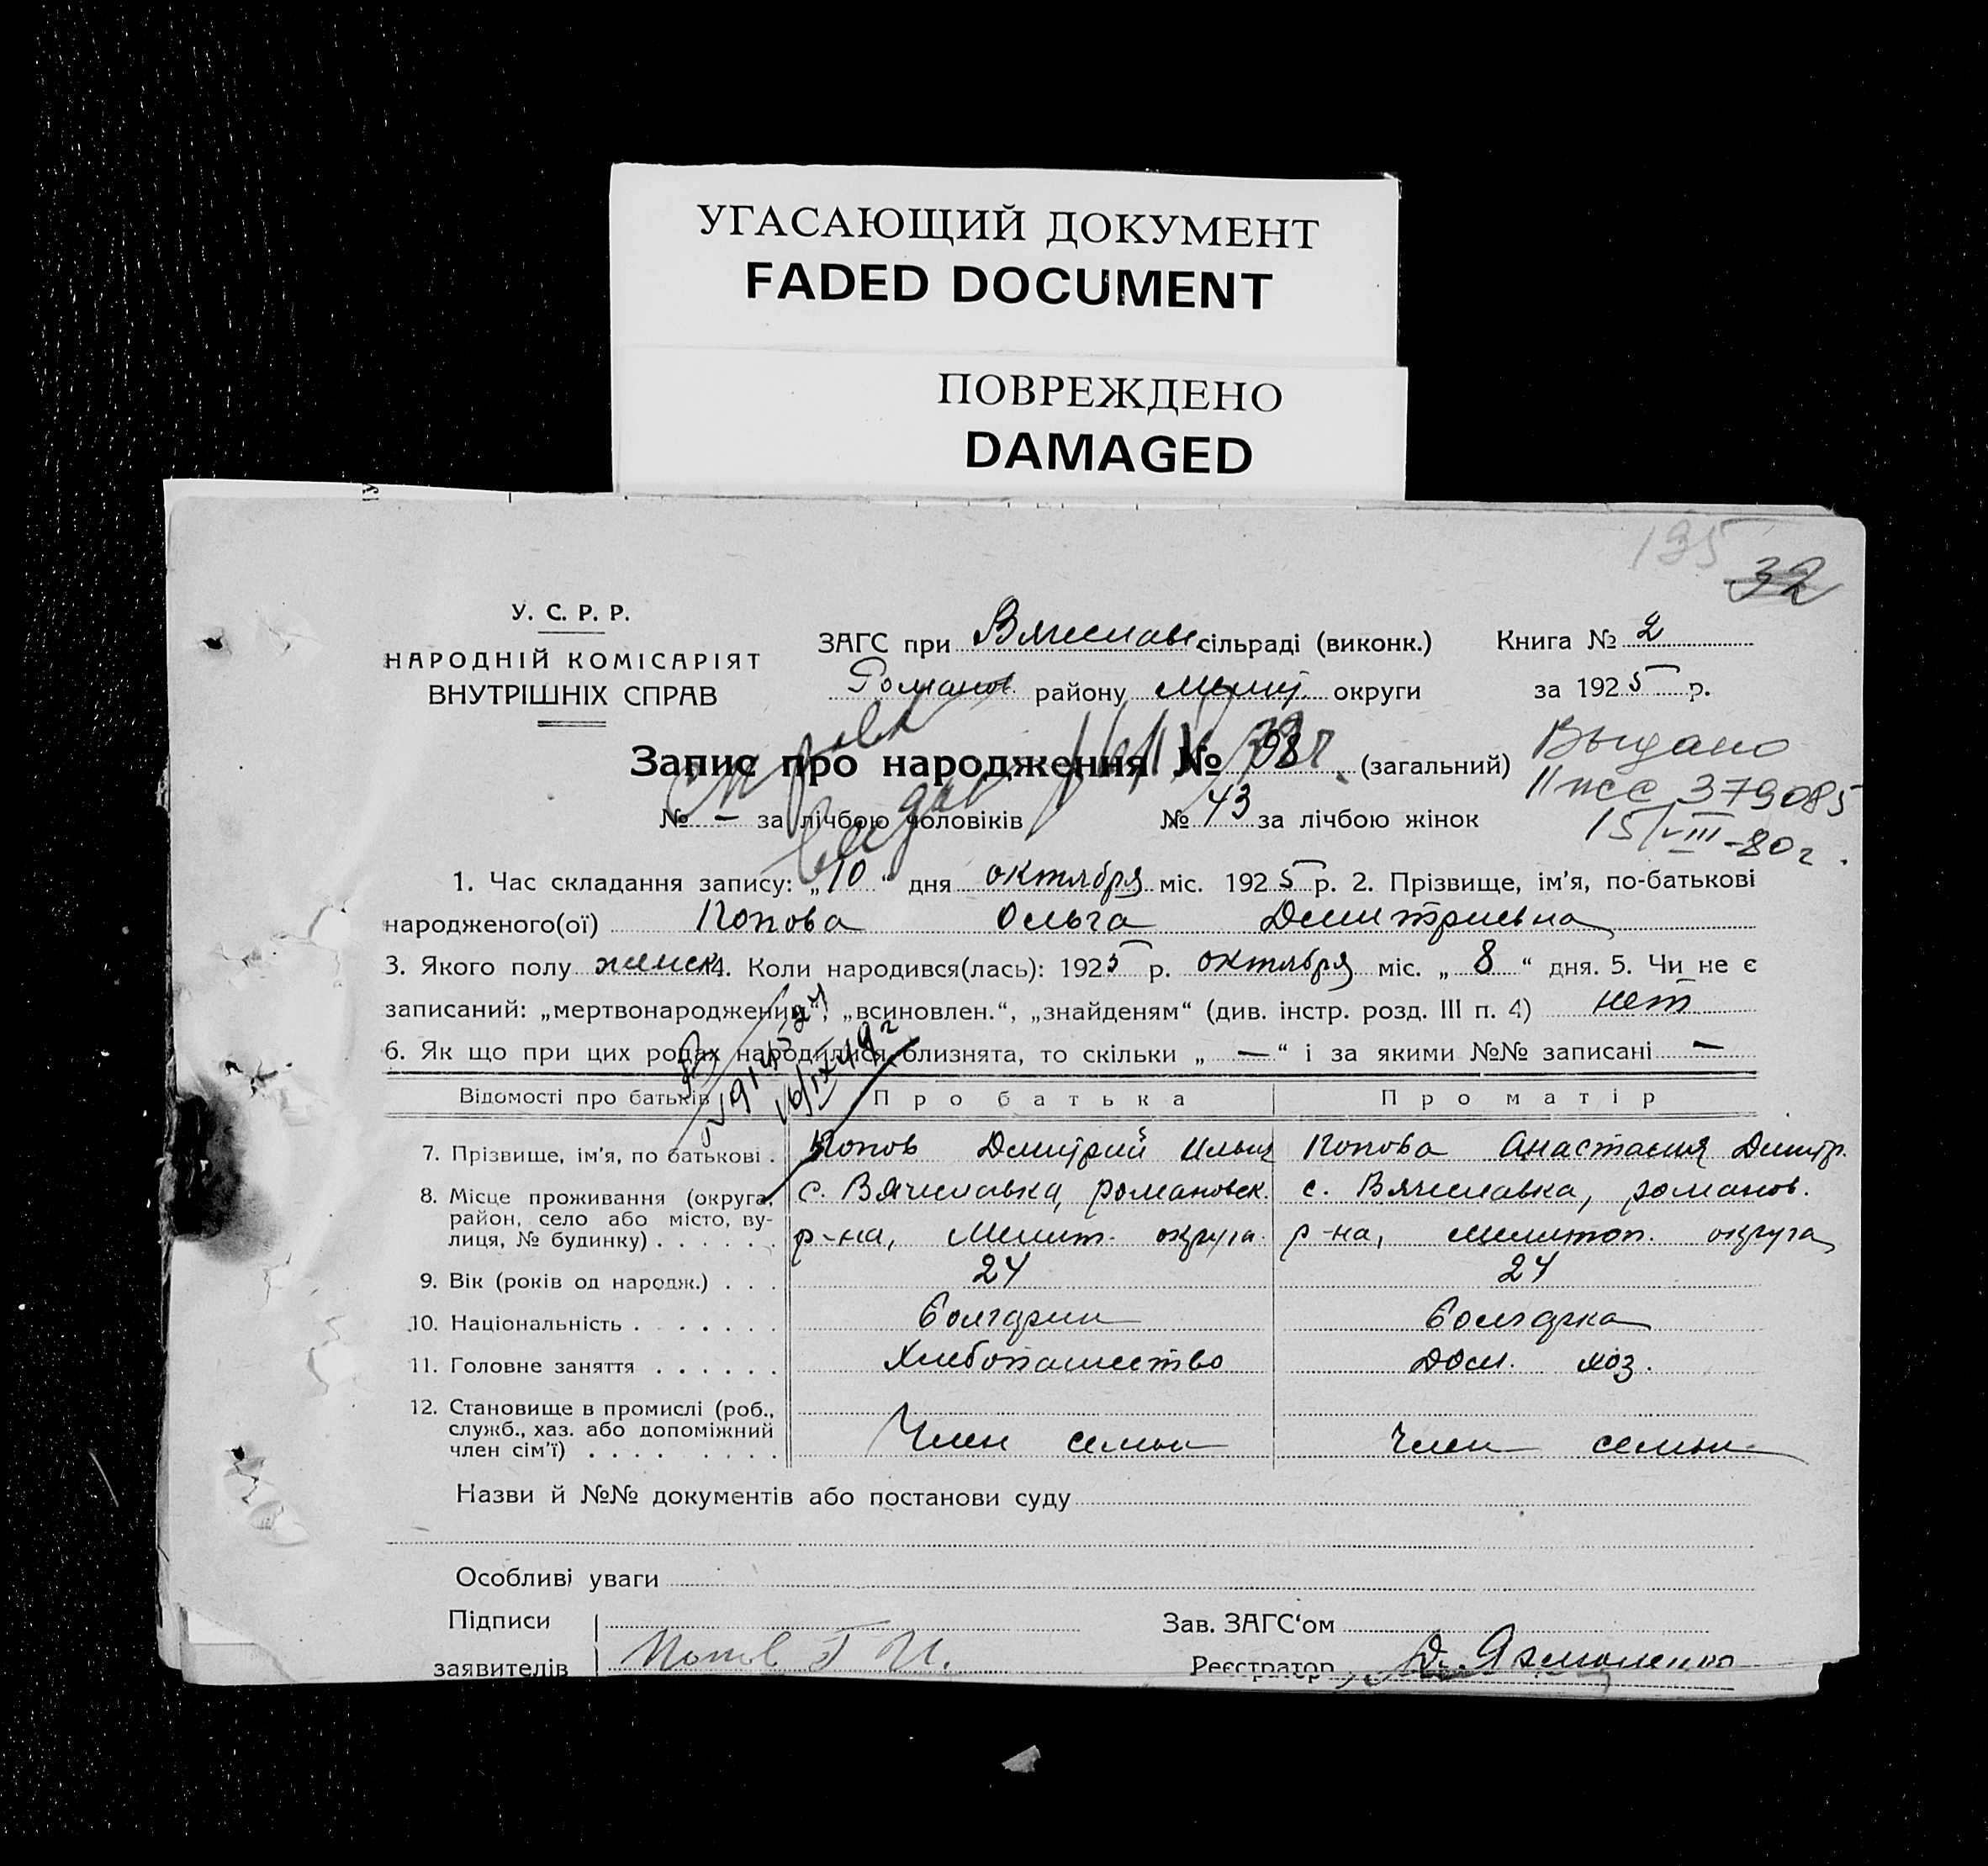 УГАСАЮЩИЙ ДОКУМЕНТ
FADED DOCUMENT
ПОВРЕЖДЕНО
DAMAGED
195
32
У. С. Р. Р.
НАРОДНІЙ КОМІСАРІЯТ
ВНУТРІШНІХ СПРАВ
ЗАГС при Вячеслав. сільраді (виконк.) Книга № 2
Романов. району Мелит. округи за 1925 р.
Запис про народження № 98 (загальний)
№ — за лічбою чоловіків № 43 за лічбою жінок
Выдано
II жс 379085
15/VIII-80г.
1. Час складання запису: „10“ дня октября міс. 1925 р. 2. Прізвище, ім’я, по-батькові
народженого(ої) Попова Ольга Дмитриевна
3. Якого полу женск. 4. Коли народився(лась): 1925 р. октября міс. „8“ дня. 5. Чи не є
записаний: „мертвонароджений“, „всиновлен.“, „знайденям“ (див. інстр. розд. III п. 4) нет
6. Як що при цих родах народилися близнята, то скільки „—“ і за якими №№ записані —
16/IX 49г
Відомості про батьків Про батька Про матір
7. Прізвище, ім’я, по батькові . Попов Дмитрий Ильич Попова Анастасия Дмитр.
8. Місце проживання (округа, с. Вячеславка, романовск. с. Вячеславка, романов.
район, село або місто, ву-
лиця, № будинку) . . . . . . р-на, Мелит. округа. р-на, мелитоп. округа
9. Вік (років од народж.) . . . 24 24
10. Національність . . . . . . Болгарин Болгарка
11. Головне заняття . . . . . . Хлебопашество Дом. хоз.
12. Становище в промислі (роб.,
служб., хаз. або допоміжний
член сім’ї) . . . . . . . . Член семьи Член семьи
Назви й №№ документів або постанови суду
Особливі уваги
Підписи Зав. ЗАГС‘ом
заявителів Попов Г И. Реєстратор